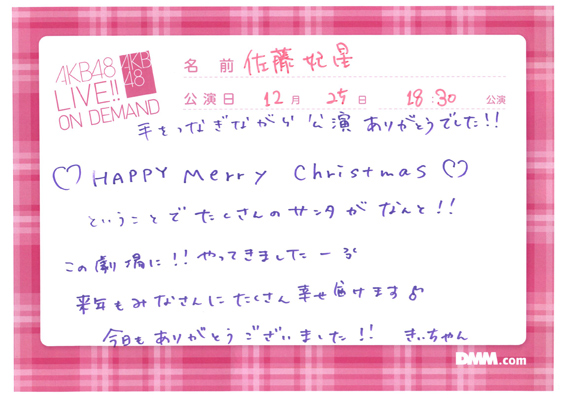 AKB48
LIVE!!
ON DEMAND
AKB
48
名 前 佐藤妃星
公演日 12月 25日 18:30 公演
手をつなぎながら 公演 ありがとうでした!!
♡ HAPPY Merry Christmas ♡
ということで たくさんのサンタが なんと!!
この劇場に!! やってきましたーぷ
来年もみなさんにたくさん幸せ届けます♪
今日も ありがとうございました!! きぃちゃん
DMM.com